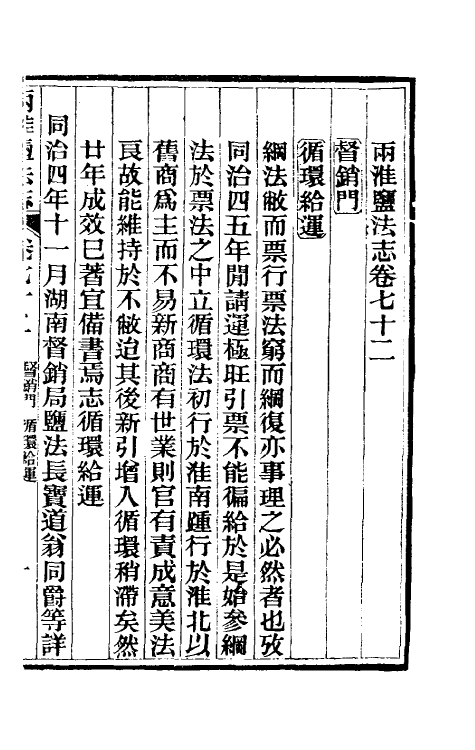 兩淮鹽法志卷七十二
督銷門
循環給運
綱法敝而票行票法窮而綱復亦事理之必然者也攷
同治四五年閒請運極旺引票不能徧給於是始參綱
法於票法之中立循環法初行於淮南踵行於淮北以
舊商爲主而不易新商商有世業則官有責成意美法
良故能維持於不敝迨其後新引增入循環稍滯矣然
廿年成效已著宜備書焉志循環給運
同治四年十一月湖南督銷局鹽法長寶道翁同爵等詳
兩淮鹽法志 卷七十二 督銷門 循環給運 一